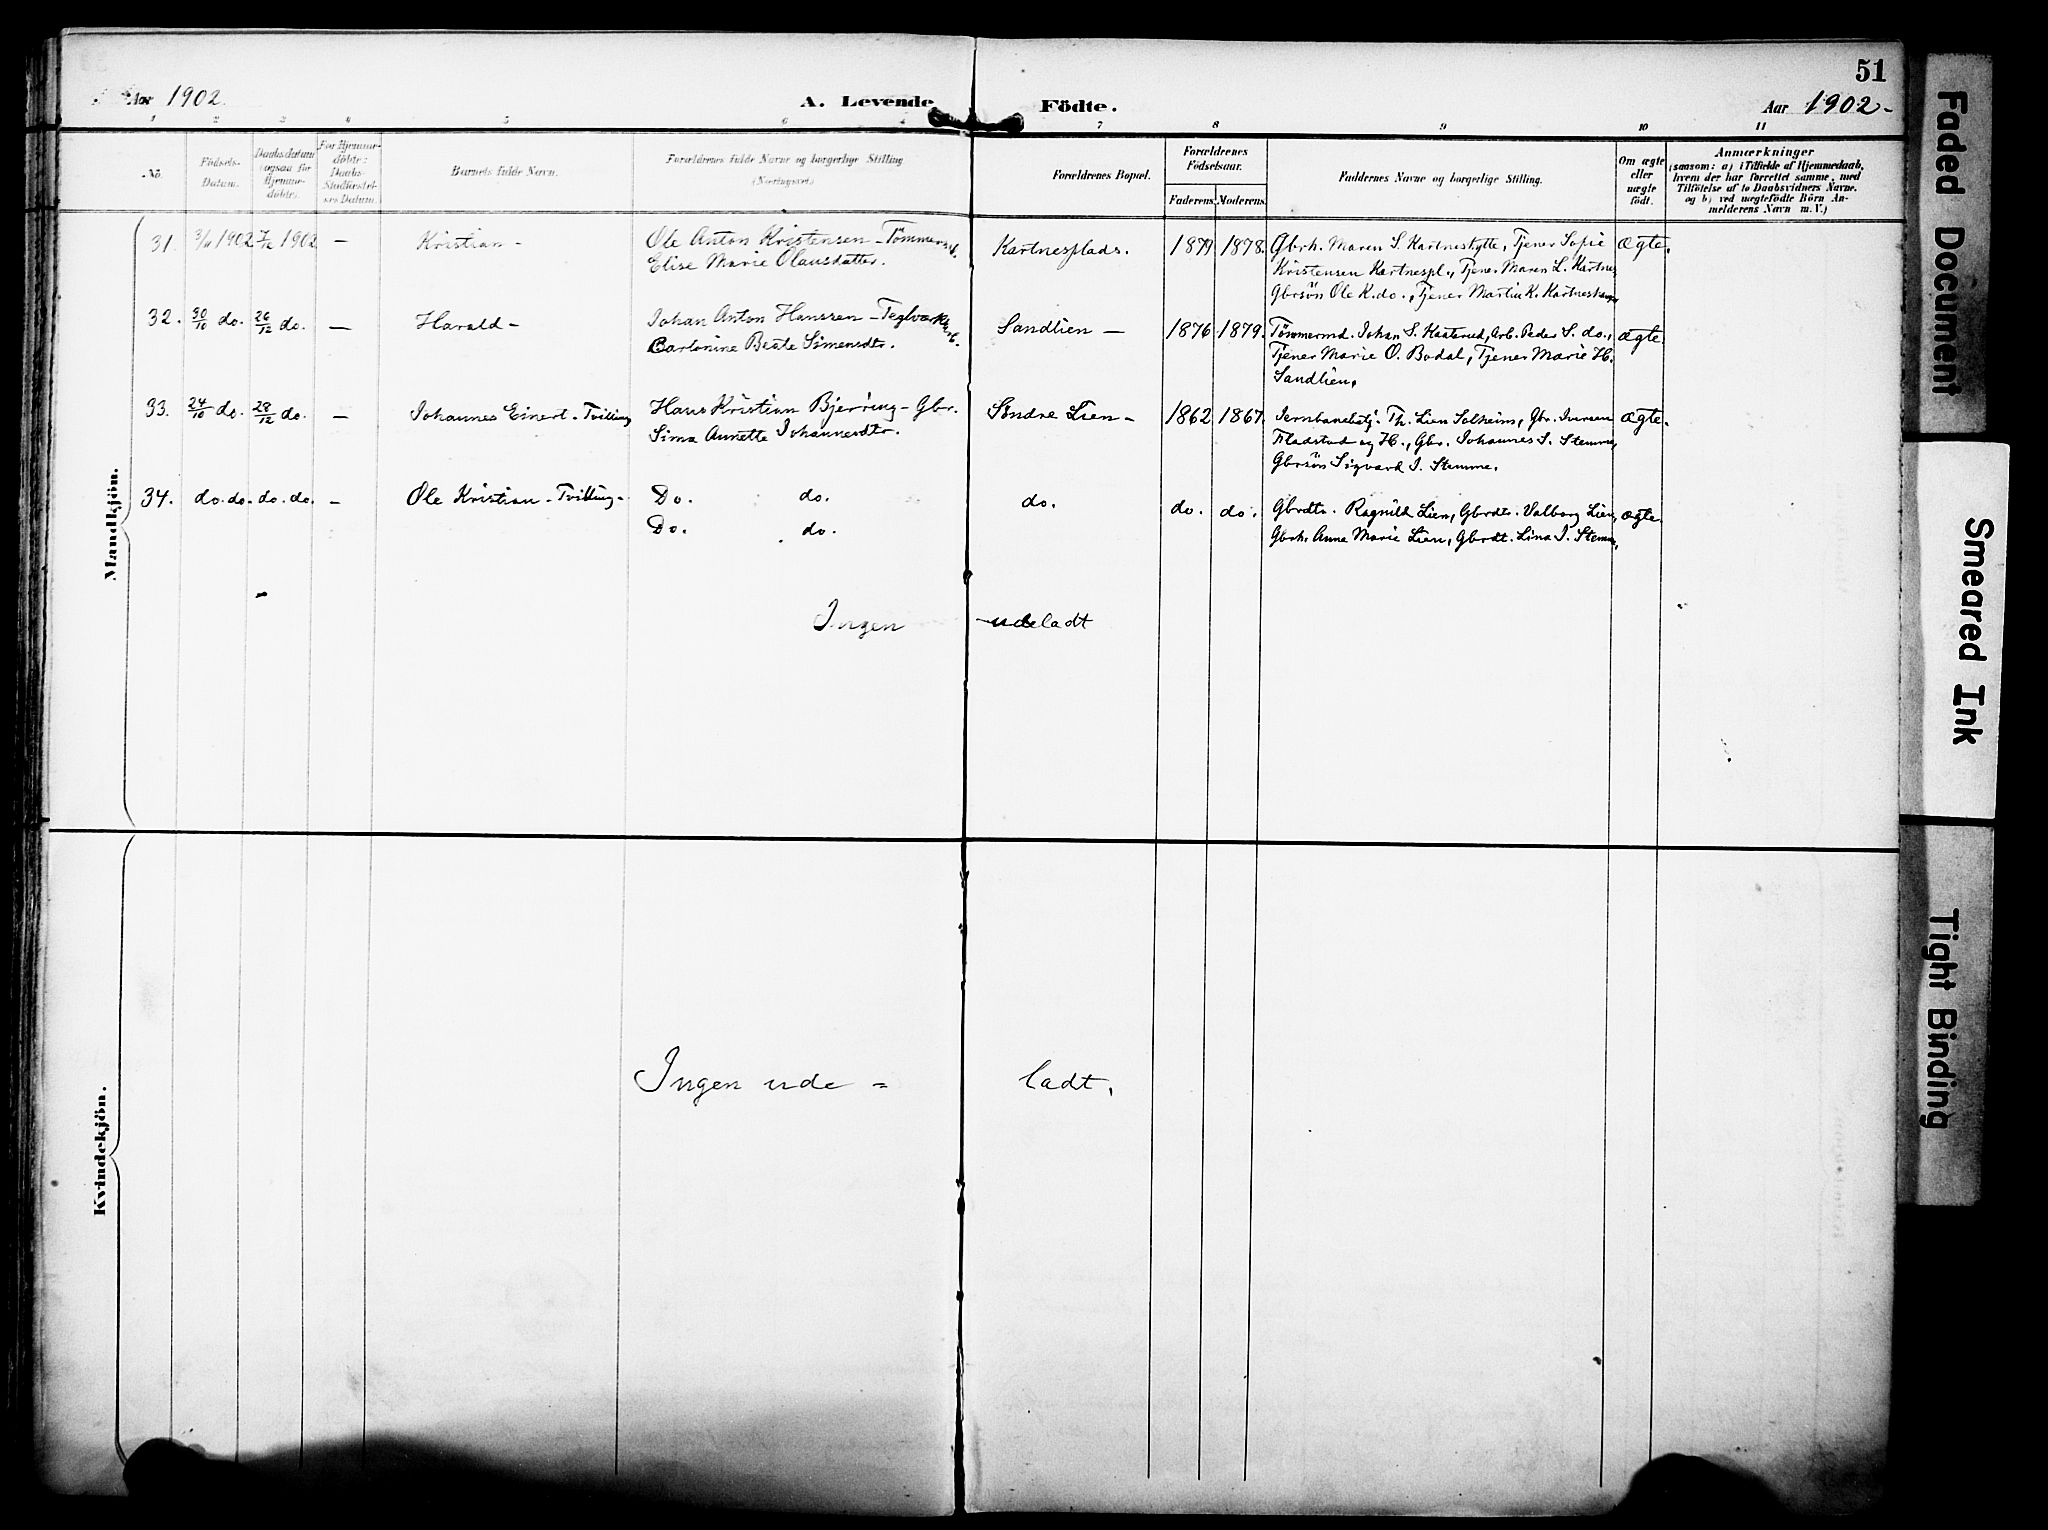 51
Aar 1902.
A. Levende Födte.
Aar 1902
1 2 3 4 5 6 7 8 9 10 11
No.
Födsels-
Datum.
Daabsdatum
(ogsaa for
Hjemme-
döbte).
For Hjemme-
döbte:
Daabs-
Stadfæstel-
ses Datum.
Barnets fulde Navn.
Forældrenes fulde Navne og borgerlige Stilling
(Næringsvei)
Forældrenes Bopæl.
Forældrenes
Födselsaar.
Faderens. Moderens.
Faddernes Navne og borgerlige Stilling.
Om ægte
eller
uægte
födt.
Anmærkninger
(saasom: a) i Tilfælde af Hjemmedaab,
hvem der har forrettet samme, med
Tilföielse af to Daabsvidners Navne,
og b) ved uægtefödte Börn An-
melderens Navn m. V.)
Mandkjön.
31. 3/11 1902 7/12 1902 — Kristian - Ole Anton Kristensen - Tömmermd. Kartnesplads. 1879 1878. Gbrh. Maren S. Kartneshytte, Tjener Sofie ægte.
Elise Marie Olausdatter. Kristensen Kartnespl., Tjener Maren L. Kartnes
Gbrsön Ole K. do., Tjener Martin K.
32. 30/10 do. 26/12 do. — Harald - Johan Anton Hanssen - Teglværk Sandlien — 1876 1879. Tömmermd. Johan S. Arb. Peder S. do., ægte.
Beate Simensdtr. Tjener Marie O. Bodal, Tjener Marie H.
Sandlien.
33. 24/10 do. 28/12 do. — Johannes Einert - Tvilling Hans Kristian Bjerring - Gbr. Söndre Lien - 1862 1867. Jernbanebetj. Th. Lien Solheim, Gbr. Iversen ægte.
Sina Annette Johannesdtr. Fladstad og H., Gbr. Johannes S. Stemme,
Gbrsön Sigvard J. Stemme.
34. do. do. do. do. — Ole Kristian - Tvilling - Do. do. do. do. do. Gbrdtr. Ragnild Lien, Gbrdtr. Valborg Lien, ægte.
Do. do. Gbrh. Anna Marie Lien, Gbrdt. Lina J. Stemme,
Ingen udeladt
Kvindekjön.
Ingen ude = ladt.
Faded Document
Smeared Ink
Tight Binding